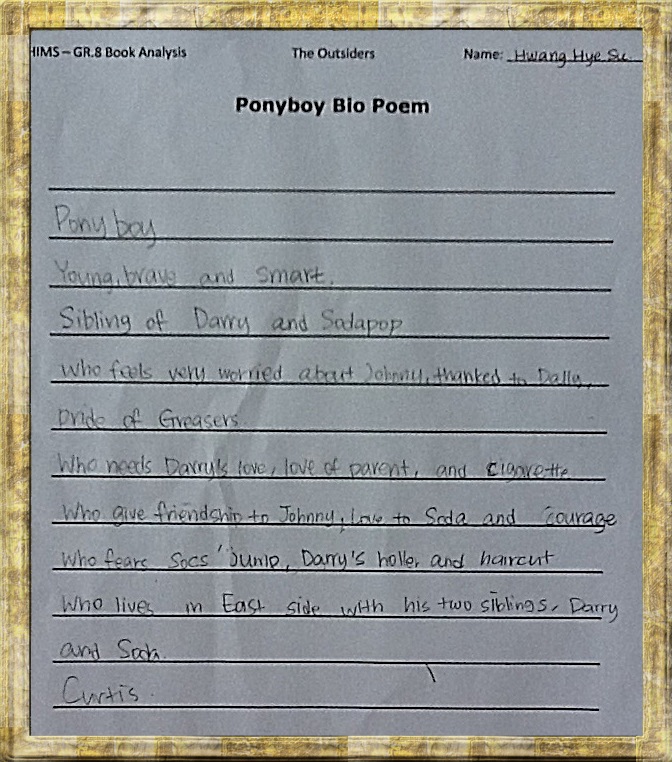 HIMS – GR.8 Book Analysis The Outsiders Name: Hwang Hye Su
Ponyboy Bio Poem
Ponyboy
Young, brave and smart.
Sibling of Darry and Sodapop
Who feels very worried about Johnny, thanked to Dally,
pride of Greasers
Who needs Darry's love, love of parent, and cigarette
Who give friendship to Johnny, Love to Soda and courage
Who fears Socs' Jump, Darry's holler and haircut
Who lives in East side with his two siblings, Darry
and Soda.
Curtis.